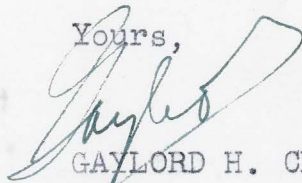 Yours,
Gaylord
GAYLORD H. C